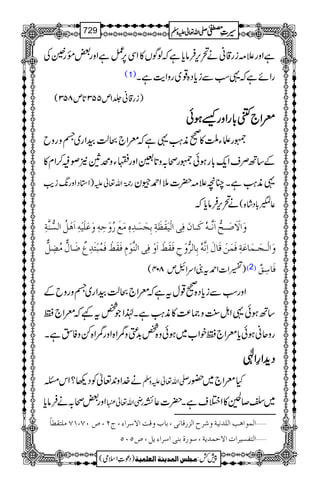 سیرتِ مصطفیٰ صلی اللہ تعالیٰ علیہ وسلم 729
ہے اور علامہ زرقانی نے تحریر فرمایا ہے کہ لوگوں کا اسی پر عمل ہے اور بعض مؤرخین کی
رائے ہے کہ یہی سب سے زیادہ قوی روایت ہے۔(1)
(زرقانی جلد۱ص ۳۵۵ تا ص۳۵۸)
معراج کتنی بار اور کیسے ہوئی
جمہور علماء ملت کا صحیح مذہب یہی ہے کہ معراج بحالت بیداری جسم و روح
کے ساتھ صرف ایک بار ہوئی جمہور صحابہ و تابعین اور فقہاء و محدثین نیز صوفیہ کرام کا
یہی مذہب ہے۔ چنانچہ علامہ حضرت ملا احمد جیون رحمۃ اللہ تعالیٰ علیہ (استاد اورنگ زیب
عالمگیر بادشاہ) نے تحریر فرمایا کہ
وَالْاَصَحُّ اَنَّہٗ کَانَ فِی الْیَقْظَۃِ بِجَسَدِہٖ مَعَ رُوْحِہٖ وَعَلَیْہِ اَھْلُ السُّنَّۃِ
وَالْجَمَاعَۃِ فَمَنْ قَالَ اِنَّہٗ بِالرُّوْحِ فَقَطْ اَوْ فِی النَّوْمِ فَقَطْ فَمُبْتَدِعٌ ضَالٌّ مُضِلٌّ
فَاسِقٌ(2) (تفسیرات احمدیہ بنی اسرائیل ص ۴۰۸)
اور سب سے زیادہ صحیح قول یہ ہے کہ معراج بحالت بیداری جسم و روح کے
ساتھ ہوئی یہی اہل سنت و جماعت کا مذہب ہے۔ لہٰذا جو شخص یہ کہے کہ معراج فقط
روحانی ہوئی یا معراج فقط خواب میں ہوئی وہ شخص بدعتی و گمراہ اور گمراہ کن و فاسق ہے۔
دیدارِ الٰہی
کیا معراج میں حضور صلی اللہ تعالیٰ علیہ وسلم نے خداوند تعالیٰ کو دیکھا؟ اس مسئلہ
میں سلف صالحین کا اختلاف ہے۔ حضرت عائشہ رضی اللہ تعالیٰ عنہا اور بعض صحابہ نے فرمایا
......المواھب اللدنیۃ وشرح الزرقانی ، باب وقت الاسراء ، ج۲ ، ص ۷۰، ۷۱ ملتقطاً
......التفسیرات الاحمدیۃ ، سورۃ بنی اسرائیل ، ص ۵۰۵
پیش کش: مجلس المدینۃ العلمیۃ (دعوتِ اسلامی)